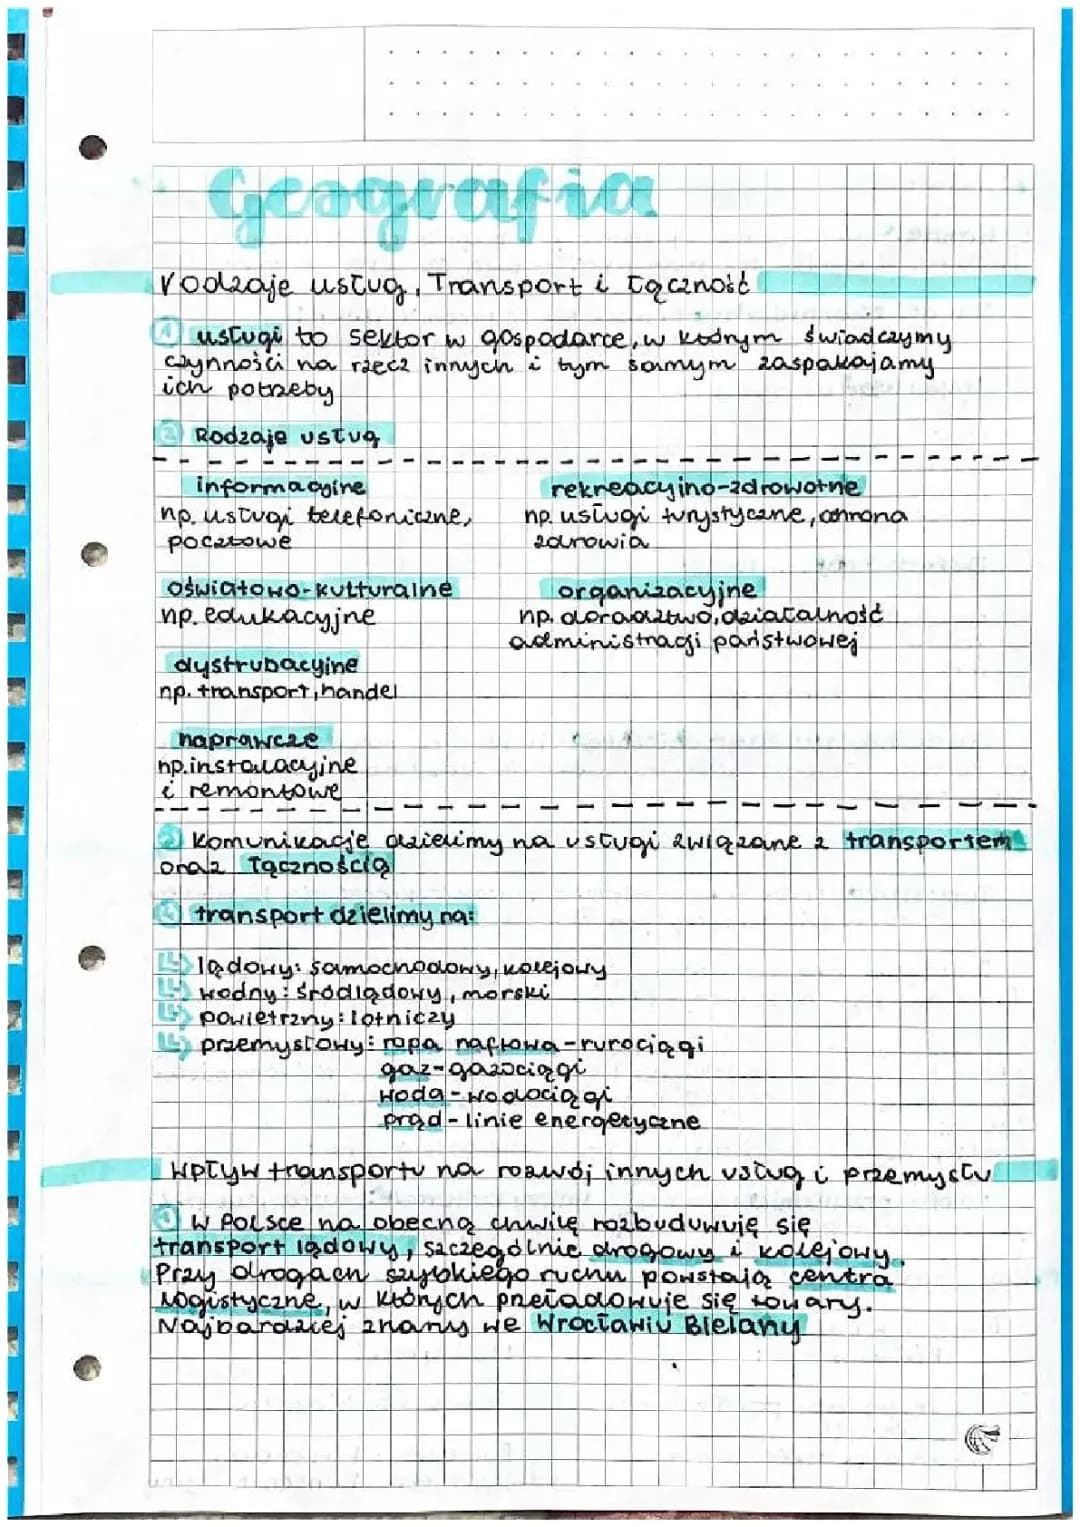 Geografia
rodzaje usług. Transport i łączność
1 usługi to sektor w gospodarce, w którym świadczymy
czynności na rzecz innych i tym samym zaspakajamy
ich potrzeby
2 Rodzaje usług
informacyjne
np. usługi telefoniczne,
pocztowe
rekreacyjno-zdrowotne
np. usługi turystyczne, ochrona
zdrowia
oświatowo-kulturalne
np. edukacyjne
organizacyjne
np. doradztwo, działalność
administracji państwowej
dystrubacyjne
np. transport, handel
naprawcze
np. instalacyjne
i remontowe
3 Komunikację dzielimy na usługi związane z transportem
oraz łącznością
4 transport dzielimy na:
lądowy: samochodowy, kolejowy
wodny: śródlądowy, morski
powietrzny: lotniczy
przemysłowy: ropa naftowa - rurociągi
gaz - gazociągi
woda - wodociągi
prąd - linie energetyczne
wpływ transportu na rozwój innych usług i przemysłu
1 W Polsce na obecną chwilę rozbuduwuję się
transport lądowy, szczególnie drogowy i kolejowy.
Przy drogach szybkiego ruchu powstają centra
logistyczne, w których przeładowuje się towary.
Najbardziej znany we Wrocławiu Bielany